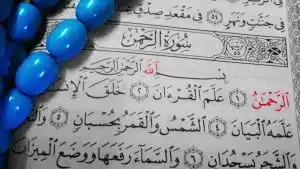 فِي جَنَّٰتٍ وَنَهَرٍ ٥٤ فِي مَقْعَدِ صِدْقٍ
سُورَةُ الرَّحْمَٰن
بِسْمِ اللَّهِ الرَّحْمَٰنِ الرَّحِيمِ
الرَّحْمَٰنُ ١ عَلَّمَ الْقُرْءَانَ ٢ خَلَقَ الْإِنسَٰ
عَلَّمَهُ الْبَيَانَ ٤ الشَّمْسُ وَالْقَمَرُ بِحُسْبَانٍ ٥ وَال
وَالشَّجَرُ يَسْجُدَانِ ٦ وَالسَّمَاءَ رَفَعَهَا وَوَضَعَ الْمِيزَانَ